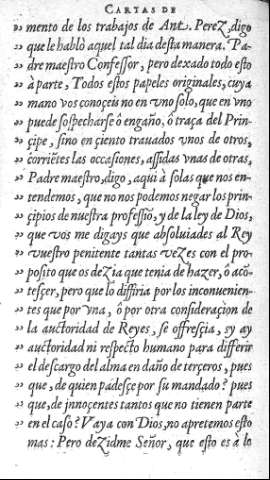 CARTAS DE
„ mento de los trabajos de Ant. Perez, digo
„ que le hablò aquel tal dia desta manera. Pa-
„ dre maestro Confessor, pero dexado todo esto
„ à parte, Todos estos papeles originales, cuya
„ mano vos conoçeis no en vno solo, que en vno
„ puede sospecharse ô engaño, ô traça del Prin-
„ çipe, sino en çiento trauados vnos de otros,
„ corriẽtes las occasiones, assidas vnas de otras,
„ Padre maestro, digo, aqui à solas que nos en-
„ tendemos, que no nos podemos negar los prin-
„ çipios de nuestra professiõ, y de la ley de Dios,
„ que vos me digays que absoluiades al Rey
„ vuestro penitente tantas vezes con el pro-
„ posito que os dezia que tenia de hazer, ô aco-
„ tesçer, pero que lo differia por los inconuenien-
„ tes que por vna, ô por otra consideraçion de
„ la auctoridad de Reyes, se offresçia, sy ay
„ auctoridad ni respecto humano para differir
„ el descargo del alma en daño de terçeros, pues
„ que, de quien padesçe por su mandado? pues
„ que, de jnnoçentes tantos que no tienen parte
„ en el caso? Vaya con Dios, no apretemos esto
„ mas: Pero dezidme Señor, que esto es à lo